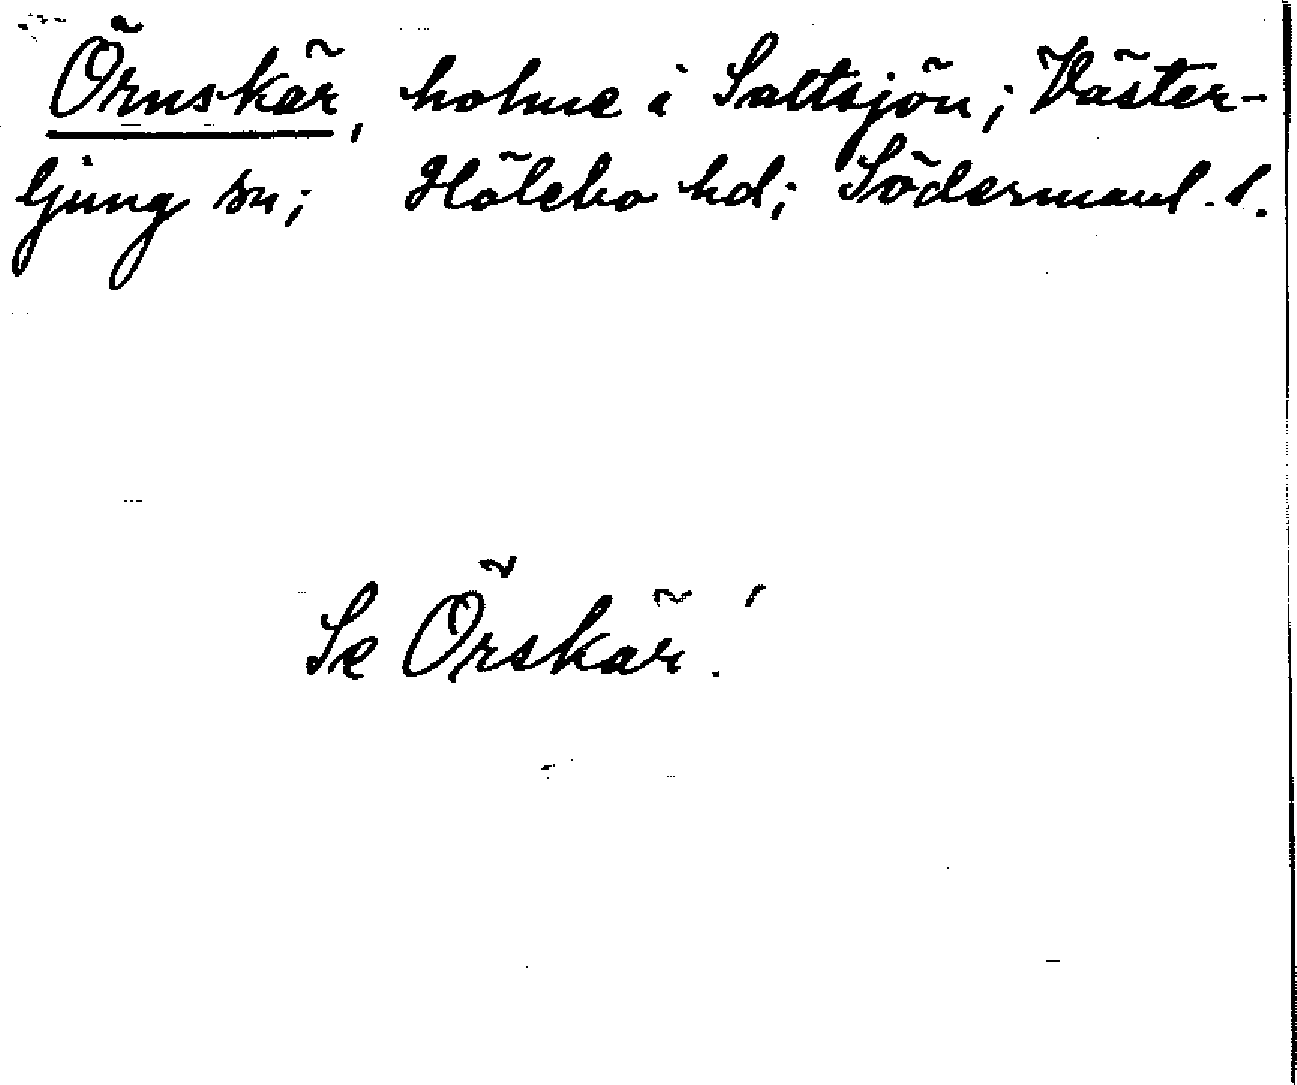 Örnskär, holme i Saltsjön; Väster-
ljung sn; Hölebo hd; Södermanl. l.
Se Örskär!